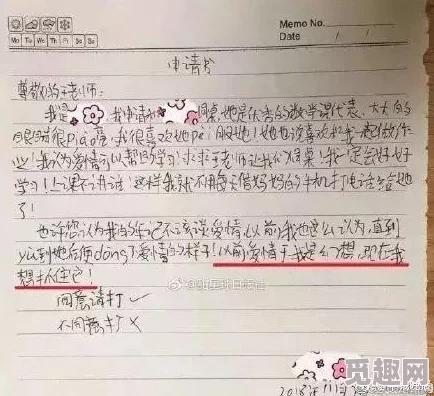 Memo No.
Mo Tu We Th Fr Sa Su
Date / /
申请书
尊敬的王老师：
我是 我申请和 同桌，她是优秀的数学课代表，大大的
眼睛很Piao亮，我很喜欢她Pei服她！她也喜欢和我一起做作
业！我认为爱情可以帮助学习！求求王老师让我们同桌！我一定会好好
学习！上课不讲话！这样我就不用每天借妈妈的手机打电话给她
了！
也许您认为我的年纪不该谈爱情，以前我也这么认为，直到
yu到她后便dong了爱情的样子！以前爱情于我是幻想，现在我
想抓住它！
同意请打✓
不同意打×
2018年11月
觅趣网